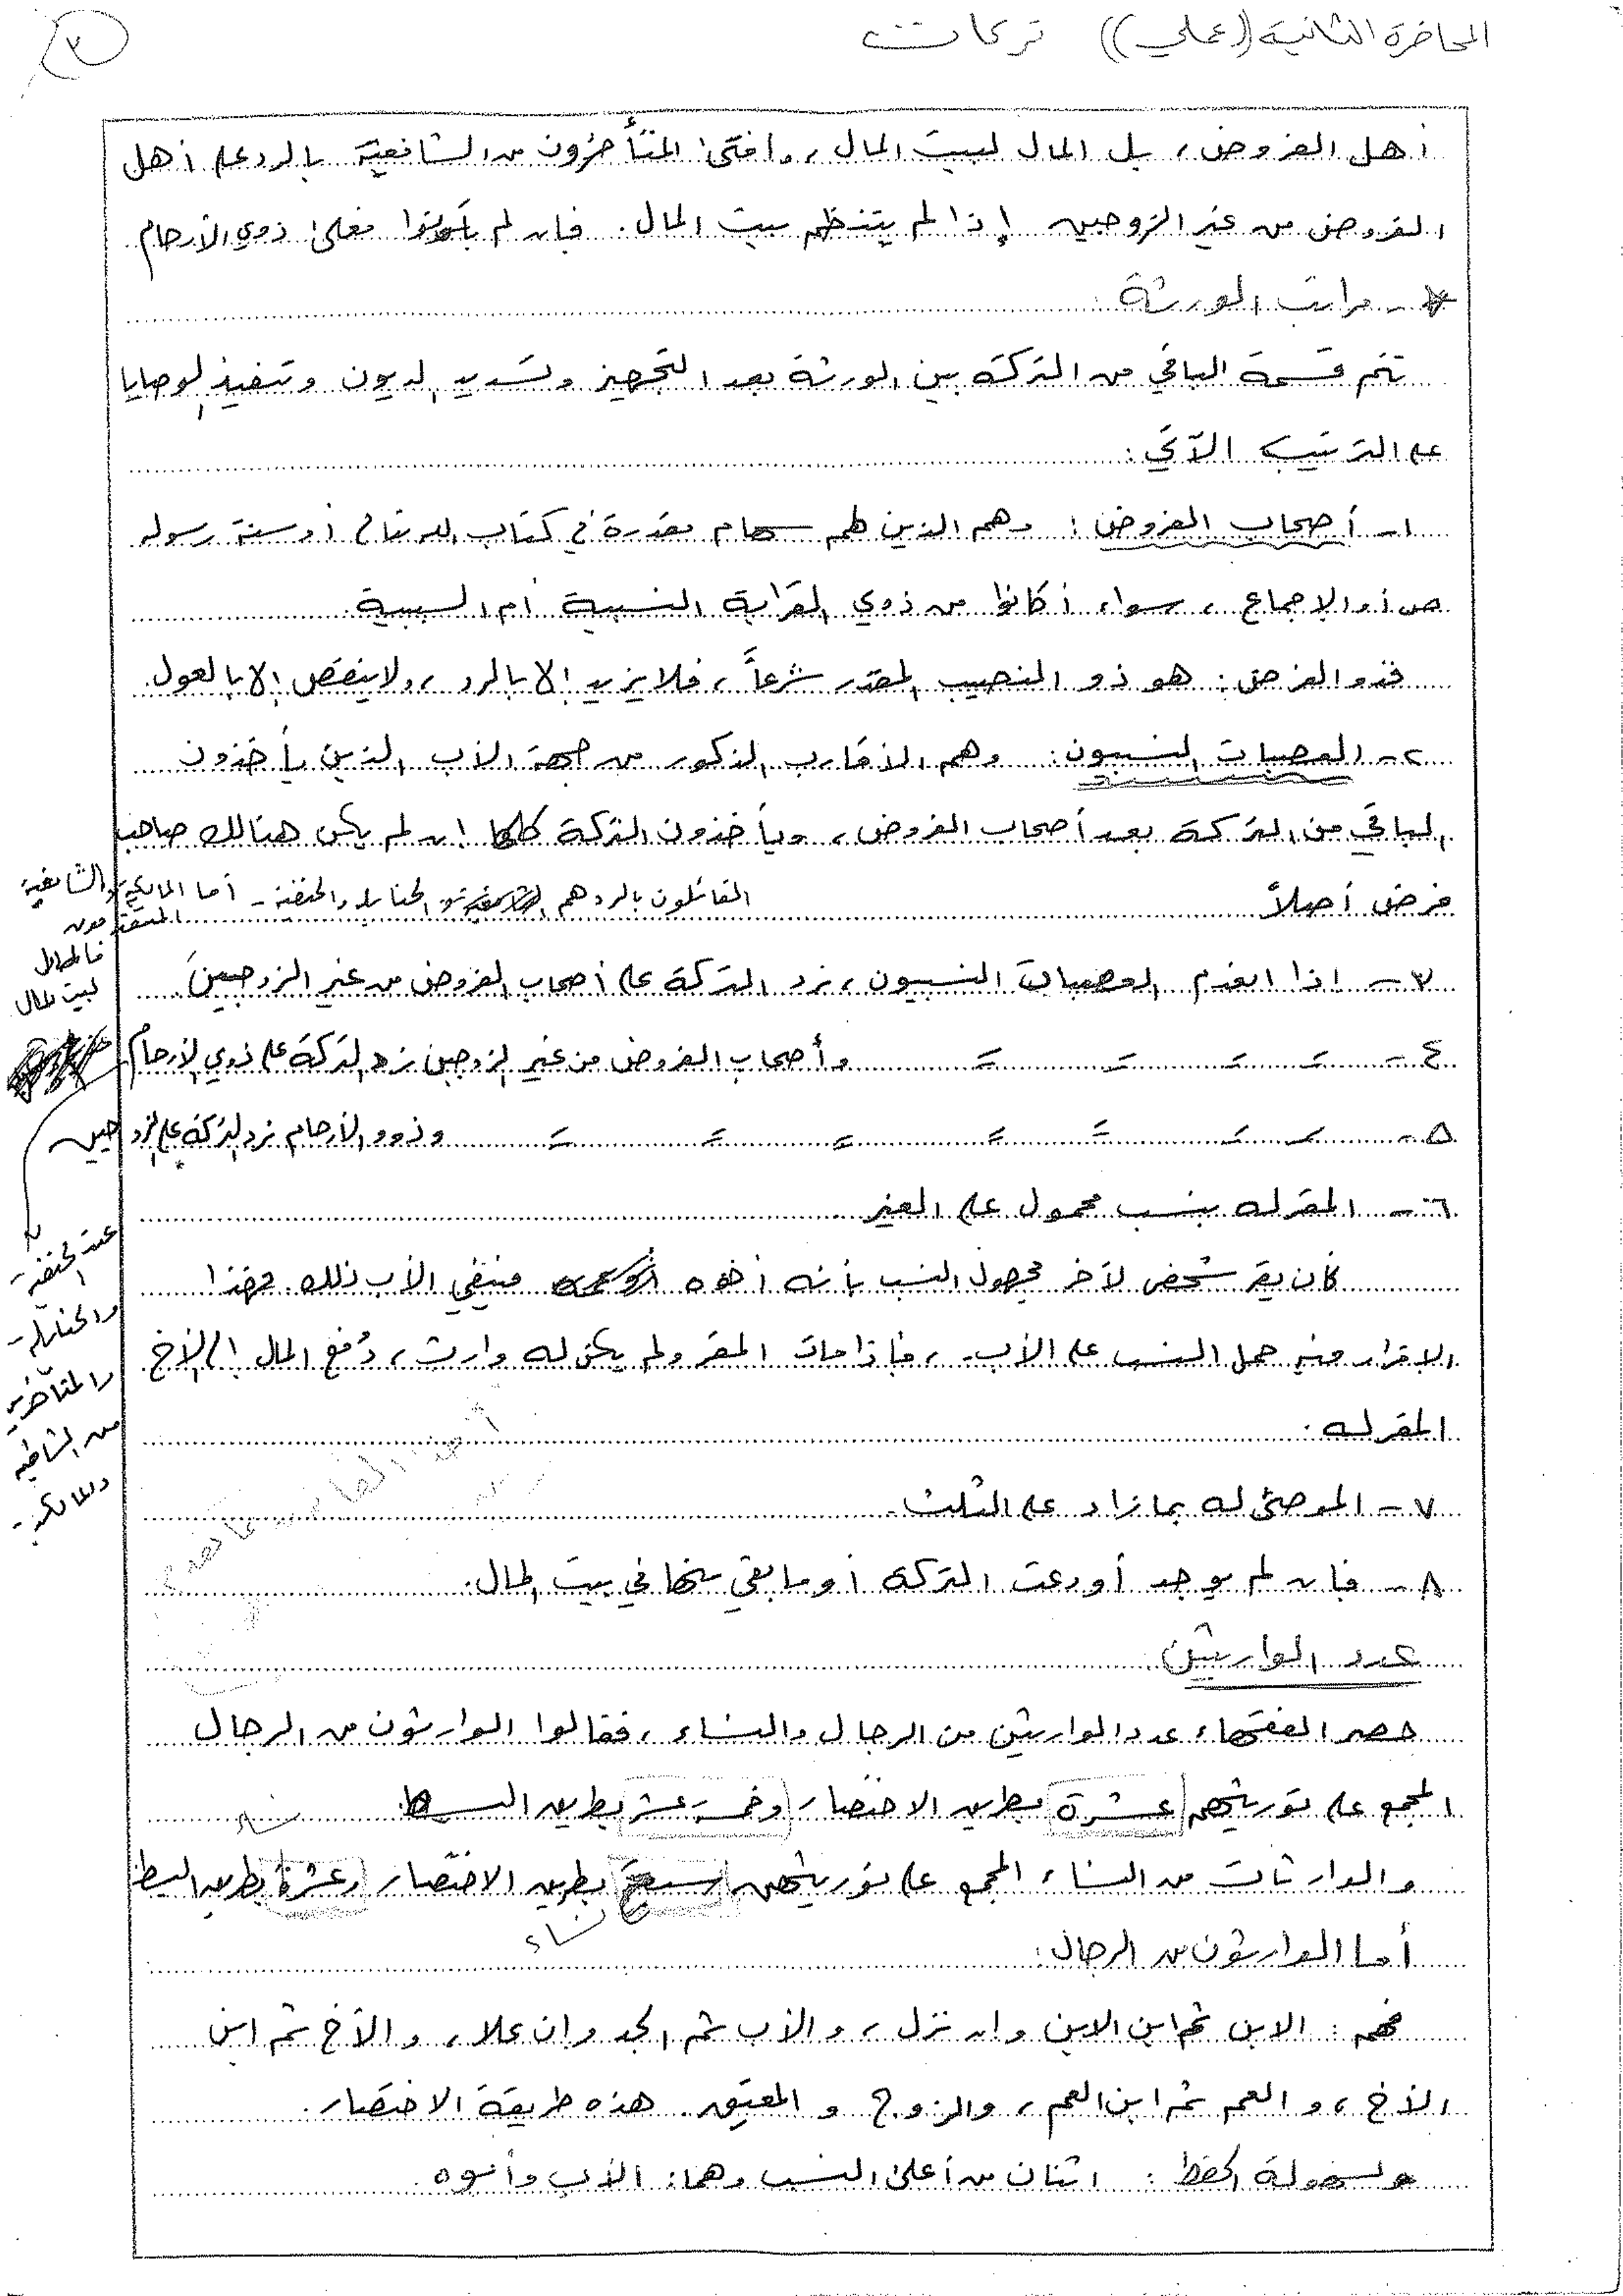 المحاضرة الثانية ((عملي)) تركات
٣
أهل الفروض، بل المال لبيت المال، وافتى المتأخرون من الشافعية بالرد على أهل
الفروض من غير الزوجين إذا لم ينتظم بيت المال. فإن لم يكونوا فعلى ذوي الأرحام.
* - مراتب الورثة:
تتم قسمة الباقي من التركة بين الورثة بعد التجهيز وتسديد الديون وتنفيذ الوصايا
على الترتيب الآتي:
١- أصحاب الفروض: وهم الذين لهم سهام مقدرة في كتاب الله تعالى أو سنة رسوله
ص أو الإجماع، سواء أكانوا من ذوي القرابة النسبية أم السببية.
فذو الفرض: هو ذو النصيب المقدر شرعاً، فلا يزيد إلا بالرد، ولا ينقص إلا بالعول.
٢- العصبات النسبيون: وهم الأقارب الذكور من جهة الأب الذين يأخذون
الباقي من التركة بعد أصحاب الفروض، ويأخذون التركة كلها إن لم يكن هنالك صاحب
فرض أصلاً
القائلون بالرد هم الحنابلة والحنفية - أما المالكية والشافعية
المتقدمون
فالمال
لبيت المال
٣- إذا انعدم العصبات النسبيون، نرد التركة على أصحاب الفروض من غير الزوجين.
٤- = = = = = وأصحاب الفروض من غير الزوجين نرد التركة على ذوي الأرحام
٥- = = = = = = = وذوو الأرحام نرد التركة على الزوجين
عند الحنفية
والحنابلة
والمتأخرين
من الشافعية
والمالكية
٦- المقر له بنسب محمول على الغير.
كأن يقر شخص لآخر مجهول النسب بأنه أخوه فينفي الأب ذلك. فهذا
الإقرار فيه حمل النسب على الأب، فإذا مات المقر ولم يكن له وارث، دُفع المال إلى الأخ
المقر له.
٧- الموصى له بما زاد على الثلث.
٨- فإن لم يوجد أودعت التركة أو ما بقي منها في بيت المال.
عدد الوارثين
حصر الفقهاء عدد الوارثين من الرجال والنساء، فقالوا الوارثون من الرجال
المجمع على توريثهم عشرة بطريق الاختصار وخمسة عشر بطريق البسط.
نساء
والوارثات من النساء المجمع على توريثهن سبع بطريق الاختصار وعشرة بطريق البسط
نساء
أما الوارثون من الرجال:
فهم: الابن ثم ابن الابن وإن نزل، والأب ثم الجد وإن علا، والأخ ثم ابن
الأخ، و العم ثم ابن العم، والزوج و المعتق. هذه طريقة الاختصار.
ولسهولة الحفظ: اثنان من أعلى النسب وهما: الأب وأبوه.